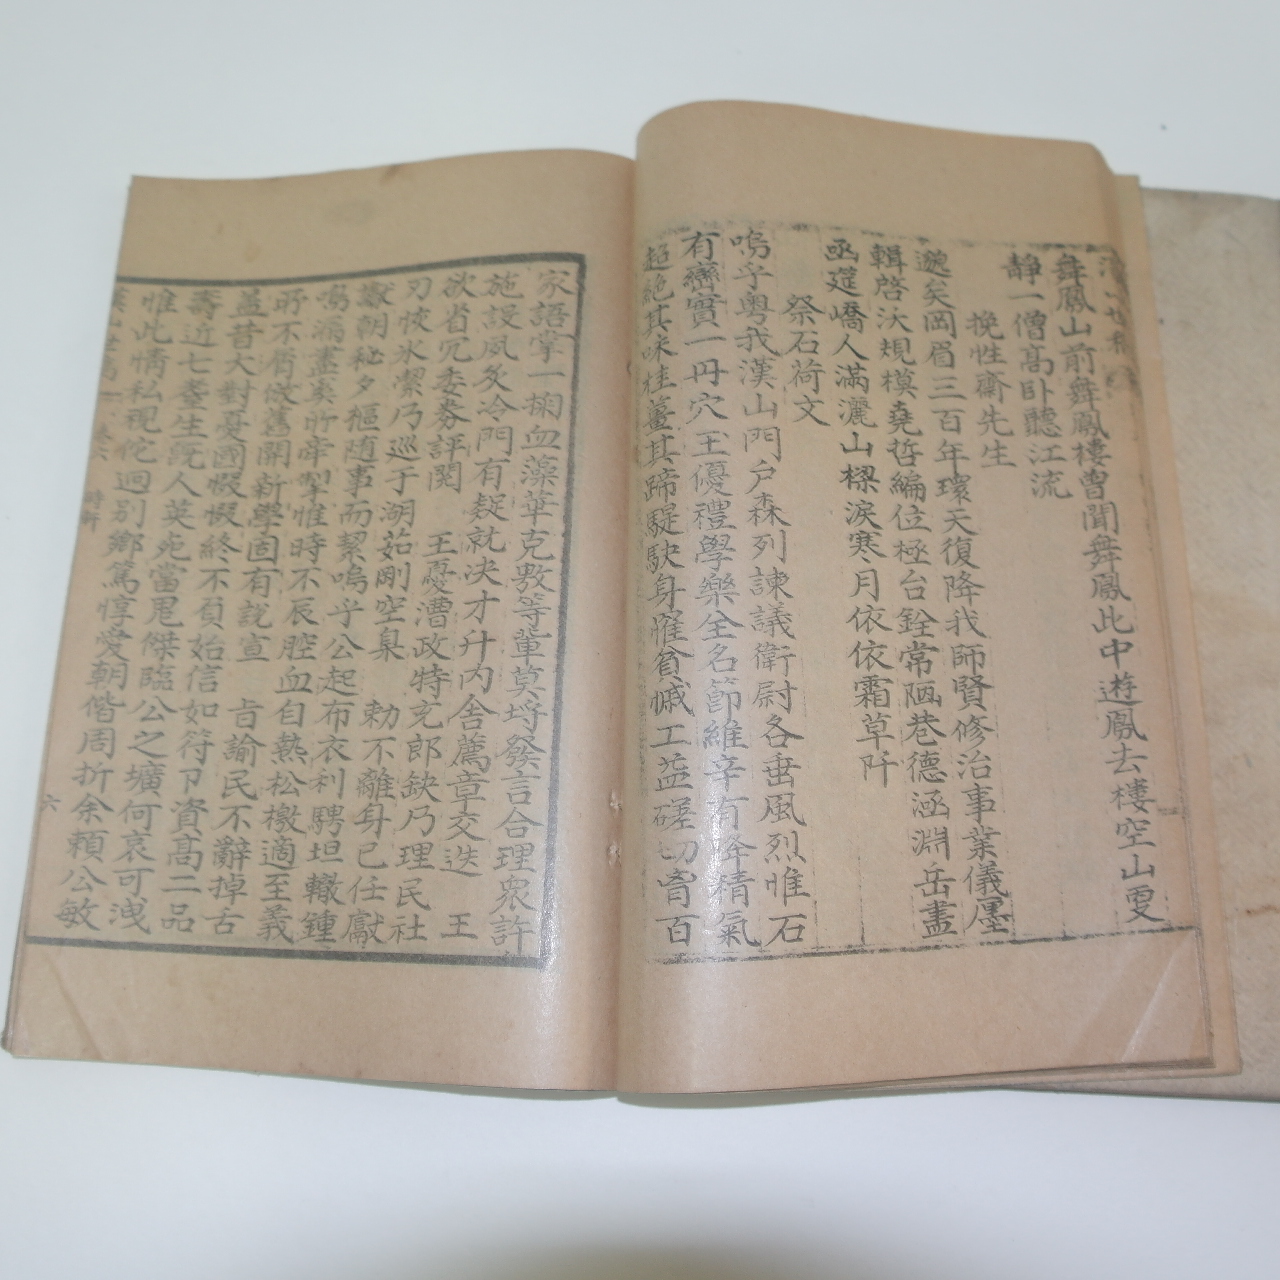 舞鳳山前舞鳳樓曾聞舞鳳此中遊鳳去樓空山雯
靜一僧高卧聽江流
挽性齋先生
邈矣岡眉三百年環天復降我師賢修治事業儀墨
輯啓沃規模堯哲編位極台銓常陋巷德涵淵岳盡
函筵嶠人滿灑山樑淚寒月依依霜草阡
祭石荷文
嗚乎粤我漢山門戶森列諫議衛尉各垂風烈惟石
有巒實一丹穴王優禮學樂全名節維辛有 精氣
超絶其味桂薑其蹄騠駃身罹貧慽工益磋切 百
家語掌一掬血藻華克敷等輩莫埒發言合理衆許
施設夙炙冷門有疑就决才升內舍薦章交迭 王
欲省冗委券評閱 王憂漕政特充郎缺乃理民社
刃恢氷潔乃巡于湖茹剛空臬 勅不離身已任獻
猷朝秘夕樞随事而絜嗚乎公起布衣利騁坦轍鍾
鳴漏盡奚所牽掣惟時不辰腔血自熱松檄適至義
所不屑倣舊開新學固有說宣 旨諭民不辭掉舌
盖昔大對憂國惙惙終不負始信如符卩資高二品
壽近七耋生旣人英死當鬼傑臨公之壙何哀可洩
惟此情私視侘迥别鄉篤惇愛朝偕周折余賴公敏
卷六
時軒
六